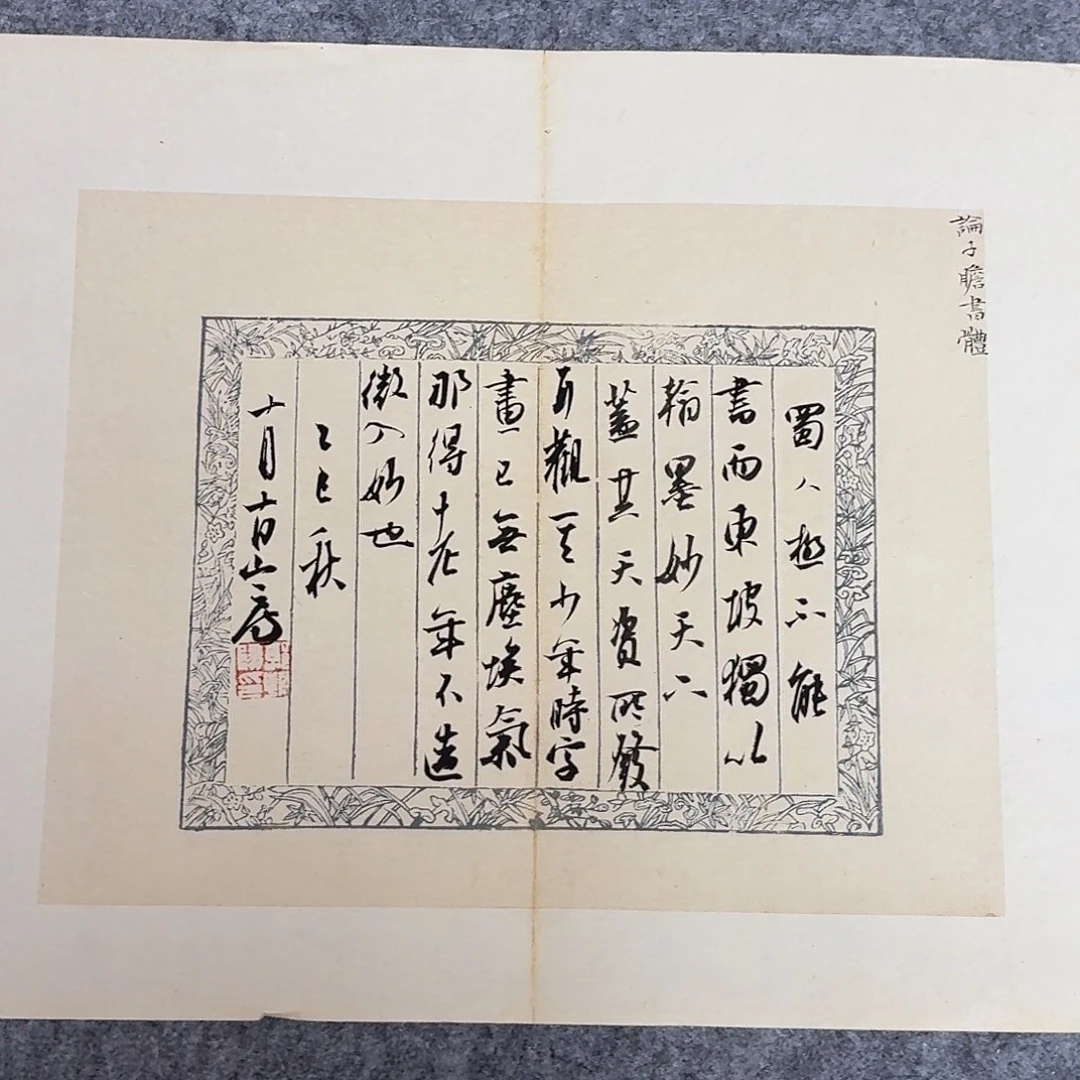 論子瞻書體
蜀人極不能
書而東坡獨以
翰墨妙天下
蓋其天資所發
耳觀其少年時字
畫已無塵埃氣
那得老年不造
微入妙也
乙巳秋
十月十日山房